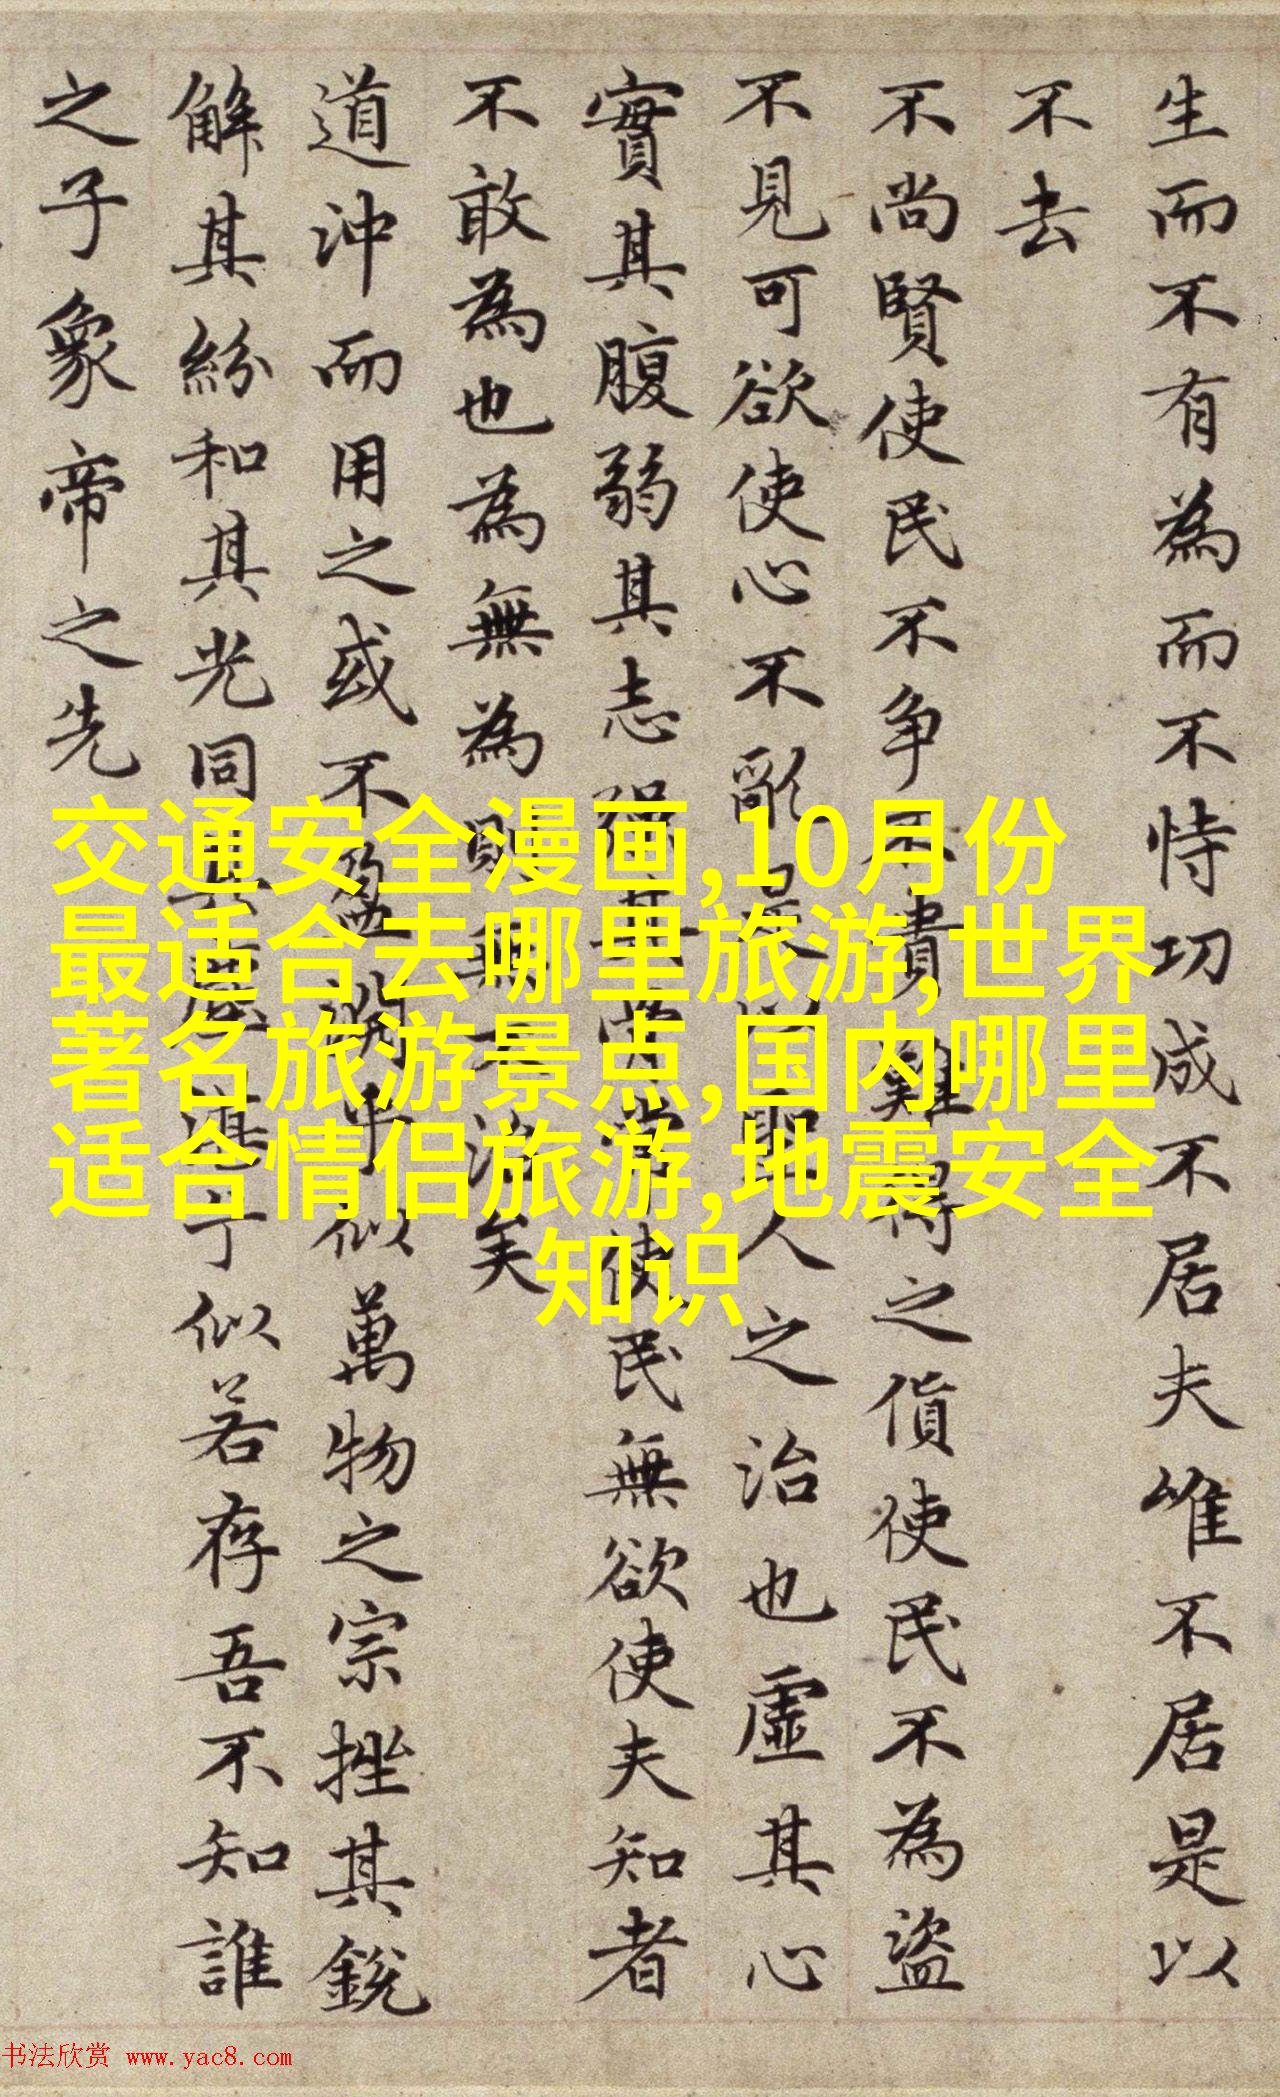 生而不有為而不恃功成不居夫唯不居是以
不去
不尚賢使民不争不貴難得之貨使民不為盜
不見可欲使心不亂是以聖人之治也虛其心
實其腹弱其志強其骨常使民無欲使夫知者
不敢為也為無為則無不治矣
道沖而用之或不盈淵乎似萬物之宗挫其銳
解其紛和其光同其塵湛兮似若存吾不知誰
之子象帝之先
交通安全漫画,10月份
最适合去哪里旅游,世界
著名旅游景点,国内哪里
适合情侣旅游,地震安全
知识
书法欣赏 www.yac8.com